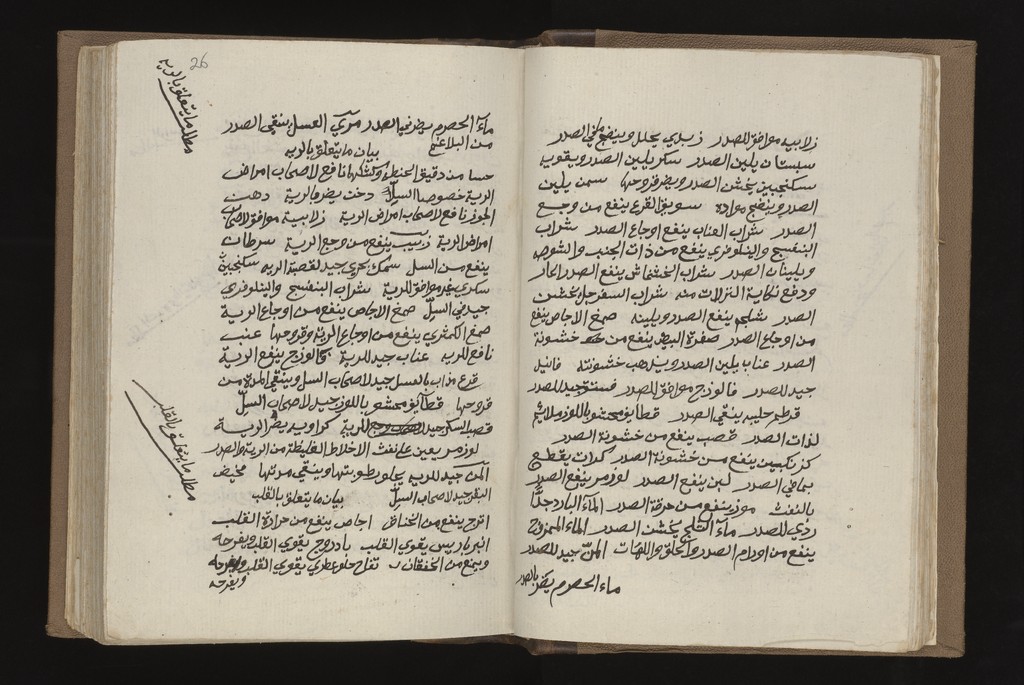 زلابيه موافق للصدر زبد بري يحلل وينضج ما في الصدر
سبستان يلين الصدر سكر يلين الصدر ويقويه
سكنجبين يخشن الصدر ويضر قروحها سمن يلين
الصدر وينضج مواده سويق القرع ينفع من وجع
الصدر شراب العناب ينفع اوجاع الصدر شراب
البنفسج والنيلوفري ينفع من ذات الجنب والشوصه
ويلينان الصدر شراب الخشخاش ينفع الصدر الحار
ودفع نكاية النزلات منه شراب السفرجل يخشن
الصدر شلجم ينفع الصدر ويلينه صمغ الاجاص ينفع
من اوجاع الصدر صفرة البيض ينفع من خشونة
الصدر عناب يلين الصدر ويذهب خشونته فانيد
جيد للصدر فالوذج موافق للصدر فستق جيد للصدر
قرطم حليبه ينقي الصدر قطايف محشو باللوز ملائم
لذات الصدر قصب ينفع من خشونة الصدر
كزنكبين ينفع من خشونة الصدر كراث يقطع
بما في الصدر لبن ينفع الصدر لوز مر ينفع الصدر
بالنفث موز ينفع من حرقة الصدر المآء البارد جدًا
ردي للصدر مآء الثلج يخشن الصدر المآء الممزوج
ينفع من اورام الصدر والحلق واللهات المنّ جيد للصدر
ماء الحصرم يضر بالصدر
26
مطلب ما يتعلق بالريه
مآء الحصرم يضر في الصدر مربي العسل ينقي الصدر
من البلاغم بيان ما يتعلق بالريه
حسا من دقيق الحنطه نافع لاصحاب امراض
الرية خصوصا السلّ دخن يضر بالرية دهن
الجوز نافع لاصحاب امراض الرية زلابية موافق لاصحاب
امراض الرية زبيب ينفع من وجع الرية سرطان
ينفع من السل سمك بحري جيد لقصبة الريه سكنجبين
سكري غير موافق للرية شراب البنفسج والنيلوفري
جيد في السلّ صمغ الاجاص ينفع من اوجاع الرية
صمغ الكمثري ينفع من اوجاع الرية وقروحها عنب
نافع للريه عناب جيد للرية فالوذج ينفع الرية
قرع مذاب بالعسل جيد لاصحاب السل وينقي المدة من
قروحها قطايف محشو باللوز جيد لاصحاب السلّ
قصب السكر جيد للرية كراويه يضر الرية
لوز مر يعين على نفث الاخلاط الغليظة من الرية والصدر
المن جيد للريه يجلو رطوبتها وينقي مدتها مخيض
البقر جيد لاصحاب السلّ بيان ما يتعلق بالقلب
مطلب ما يتعلق بالقلب
اترج ينفع من الخناق اجاص ينفع من حرارة القلب
انبرباريس يقوي القلب بادروج يقوي القلب ويفرحه
ويمنع من الخفقان تفاح حلو عطري يقوي القلب
ويفرحه